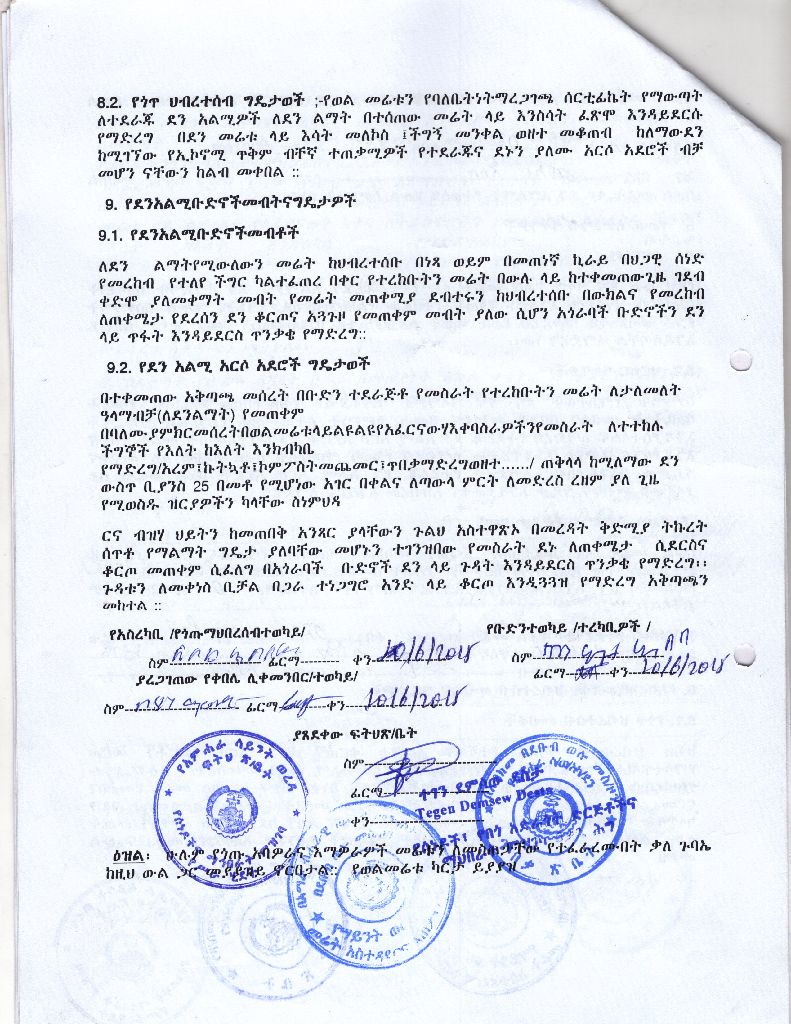 8.2. የጎጥ ህብረተሰብ ግዴታወች ;-የወል መሬቱን የባለቤትነትማረጋገጫ ሰርቲፊኬት የማውጣት
ለተደራጁ ደን አልሚዎች ለደን ልማት በተሰጠው መሬት ላይ እንስሳት ፈጽሞ እንዳይደርሱ
የማድረግ በደን መሬቱ ላይ እሳት መለኮስ ፤ችግኝ መንቀል ወዘተ መቆጠብ ከለማውደን
ከሚገኘው የኢኮኖሚ ጥቅም ብቸኛ ተጠቃሚዎች የተደራጁና ደኑን ያለሙ አርሶ አደሮች ብቻ
መሆን ናቸውን ከልብ መቀበል ::
9. የደንአልሚቡድኖችመብትናግዴታዎች
9.1. የደንአልሚቡድኖችመብቶች
ለደን ልማትየሚውለውን መሬት ከህብረተሰቡ በነጻ ወይም በመጠነኛ ኪራይ በህጋዊ ሰነድ
የመረከብ የተለየ ችግር ካልተፈጠረ በቀር የተረከቡትን መሬት በውሉ ላይ ከተቀመጠውጊዜ ገደብ
ቀድሞ ያለመቀማት መብት የመሬት መጠቀሚያ ደብተሩን ከህብረተሰቡ በውክልና የመረከብ
ለጠቀሜታ የደረሰን ደን ቆርጦና አጓጉዞ የመጠቀም መብት ያለው ሲሆን አጎራባች ቡድኖችን ደን
ላይ ጥፋት እንዳይደርስ ጥንቃቄ የማድረግ::
9.2. የደን አልሚ አርሶ አደሮች ግዴታወች
በተቀመጠው አቅጣጫ መሰረት በቡድን ተደራጅቶ የመስራት የተረከቡትን መሬት ለታለመለት
ዓላማብቻ(ለደንልማት) የመጠቀም
በባለሙያምክርመሰረትበወልመሬቱላይልዩልዩየአፈርናውሃእቀባስራዎችንየመስራት ለተተከሉ
ችግኞች የእለት ከእለት እንክብካቤ
የማድረግ/አረም፤ኩትኳቶ፤ኮምፖስትመጨመር፤ጥበቃማድረግወዘተ....../ ጠቅላላ ከሚለማው ደን
ውስጥ ቢያንስ 25 በመቶ የሚሆነው አገር በቀልና ለጣውላ ምርት ለመድረስ ረዘም ያለ ጊዜ
የሚወስዱ ዝርያዎችን ካላቸው ስነምህዳ
ርና ብዝሃ ህይትን ከመጠበቅ አንጻር ያላቸውን ጉልህ አስተዋጽኦ በመረዳት ቅድሚያ ትኩረት
ሰጥቶ የማልማት ግዴታ ያለባቸው መሆኑን ተገንዝበው የመስራት ደኑ ለጠቀሜታ ሲደርስና
ቆርጦ መጠቀም ሲፈለግ በአጎራባች ቡድኖች ደን ላይ ጉዳት እንዳይደርስ ጥንቃቄ የማድረግ፡፡
ጉዳቱን ለመቀነስ ቢቻል በጋራ ተነጋግሮ አንድ ላይ ቆርጦ እንዲጓጓዝ የማድረግ አቅጣጫን
መከተል ::
የአስረካቢ /የጎጡማህበረሰብተወካይ/ የቡድንተወካይ /ተረካቢዎች /
ስም ፊርማ-------- ቀን 20/6/2015 ስም
ፊርማ ቀን 20/6/2015
ያረጋገጠው የቀበሌ ሊቀመንበር/ተወካይ/
ስም ፊርማ ቀን 20/6/2015
ያጸደቀው ፍትህጽ/ቤት
ስም
ፊርማ
ተገን ደምሰው ደስታ
Tegen Demsew Desta
ቀን
ዕዝል፡ ሁሉም የጎጡ አባዎራና እማዎራዎች መሬቱን ለመስጠታቸው የተፈራረሙበት ቃለ ጉባኤ
ከዚህ ውል ጋር መያያዝ ይኖርበታል:: የወልመሬቱ ካርታ ይያያዝ